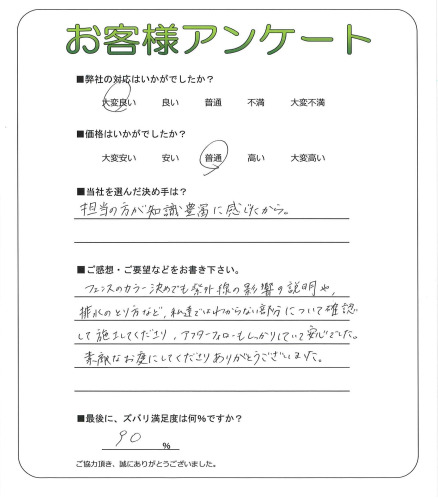 お客様アンケート
■弊社の対応はいかがでしたか？
大変良い 良い 普通 不満 大変不満
■価格はいかがでしたか？
大変安い 安い 普通 高い 大変高い
■当社を選んだ決め手は？
担当の方が知識豊富に感じたから。
■ご感想・ご要望などをお書き下さい。
フェンスのカラー決めでも紫外線の影響の説明や,
排水のとり方など, 私達ではわからない部分について確認
して施工してくださり, アフターフォローもしっかりしていて安心でした。
素敵なお庭にしてくださりありがとうございました。
■最後に、ズバリ満足度は何％ですか？
90 ％
ご協力頂き、誠にありがとうございました。